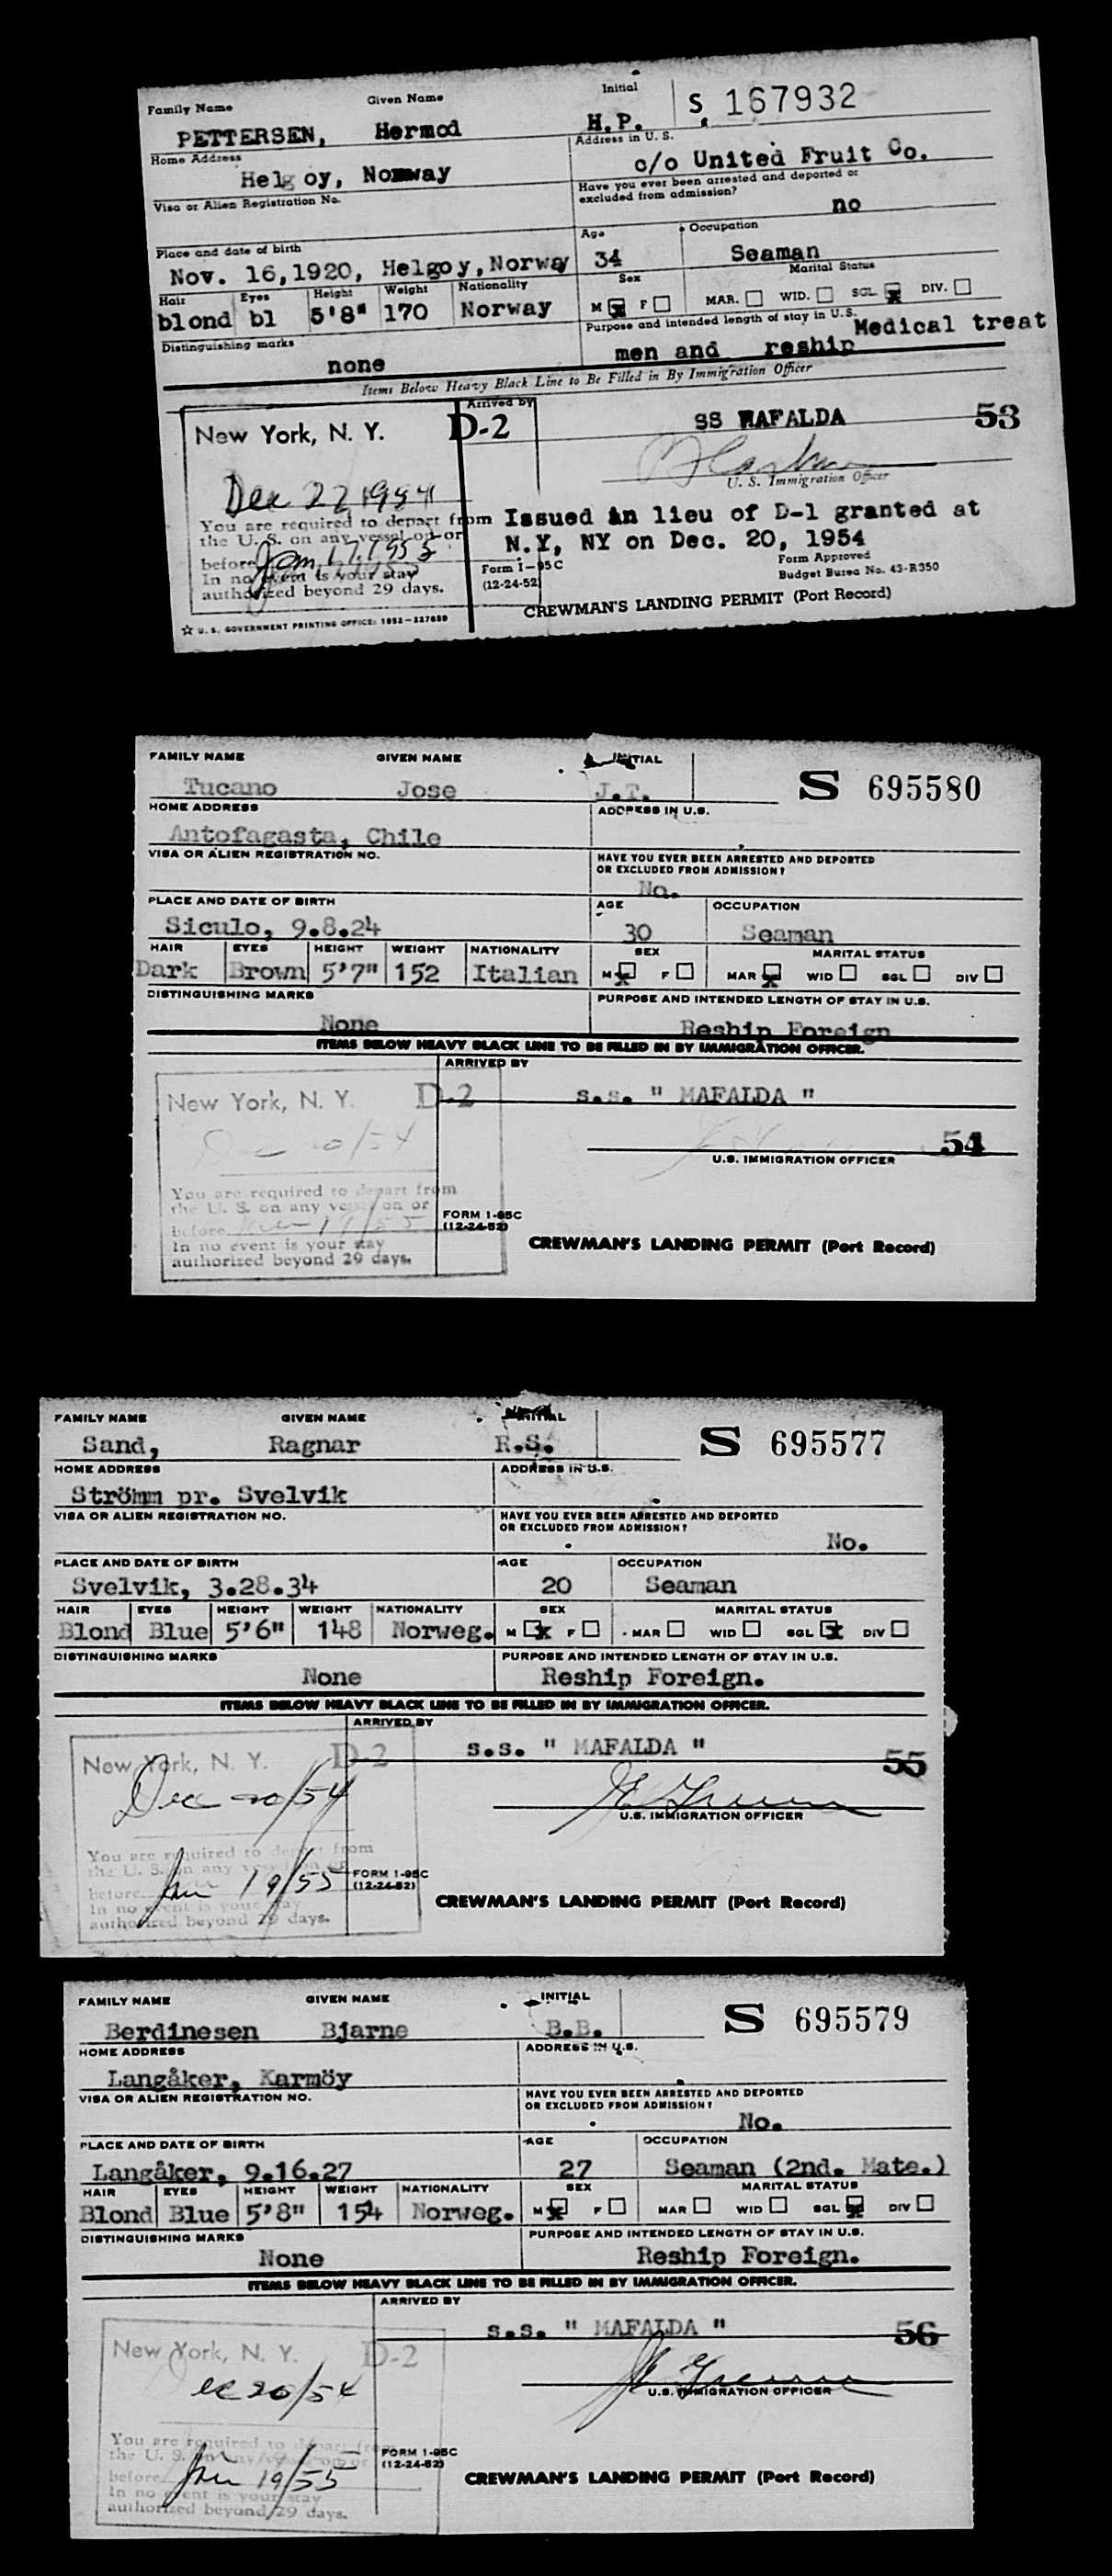 Family Name Given Name Initial S 167932
PETTERSEN, Hermod H.P.
Home Address Address in U. S.
Helgoy, Norway c/o United Fruit Co.
Visa or Alien Registration No. Have you ever been arrested and deported or excluded from admission?
no
Place and date of birth Age Occupation
Nov. 16,1920, Helgoy, Norway 34 Seaman
Hair Eyes Height Weight Nationality Sex Marital Status
blond bl 5'8" 170 Norway M F MAR. WID. SGL DIV.
Distinguishing marks Purpose and intended length of stay in U.S. Medical treat
none men and reship
Items Below Heavy Black Line to Be Filled in By Immigration Officer
Arrived by
New York, N. Y. D-2 SS MAFALDA 53
U. S. Immigration Officer
Dec 22, 1954
You are required to depart from Issued in lieu of D-1 granted at
the U. S. on any vessel on or N.Y, NY on Dec. 20, 1954
before Jan 17, 1955 Form I-95C Form Approved
In no event is your stay (12-24-52) Budget Bureau No. 43-R350
authorized beyond 29 days. CREWMAN'S LANDING PERMIT (Port Record)
☆ U. S. GOVERNMENT PRINTING OFFICE: 1952-227859
FAMILY NAME GIVEN NAME INITIAL S 695580
Tucano Jose J.T.
HOME ADDRESS ADDRESS IN U.S.
Antofagasta, Chile
VISA OR ALIEN REGISTRATION NO. HAVE YOU EVER BEEN ARRESTED AND DEPORTED OR EXCLUDED FROM ADMISSION?
No.
PLACE AND DATE OF BIRTH AGE OCCUPATION
Siculo, 9.8.24 30 Seaman
HAIR EYES HEIGHT WEIGHT NATIONALITY SEX MARITAL STATUS
Dark Brown 5'7" 152 Italian M F MAR WID SGL DIV
DISTINGUISHING MARKS PURPOSE AND INTENDED LENGTH OF STAY IN U.S.
None Reship Foreign
ITEMS BELOW HEAVY BLACK LINE TO BE FILLED IN BY IMMIGRATION OFFICER.
ARRIVED BY
New York, N. Y. D-2 s.s. " MAFALDA "
Dec 20/54 54
U.S. IMMIGRATION OFFICER
You are required to depart from
the U. S. on any vessel on or FORM 1-95C
before Jan 19/55 (12-24-52)
In no event is your stay CREWMAN'S LANDING PERMIT (Port Record)
authorized beyond 29 days.
FAMILY NAME GIVEN NAME INITIAL S 695577
Sand, Ragnar R.S.
HOME ADDRESS ADDRESS IN U.S.
Strömm pr. Svelvik
VISA OR ALIEN REGISTRATION NO. HAVE YOU EVER BEEN ARRESTED AND DEPORTED OR EXCLUDED FROM ADMISSION?
No.
PLACE AND DATE OF BIRTH AGE OCCUPATION
Svelvik, 3.28.34 20 Seaman
HAIR EYES HEIGHT WEIGHT NATIONALITY SEX MARITAL STATUS
Blond Blue 5'6" 148 Norweg. M F MAR WID SGL DIV
DISTINGUISHING MARKS PURPOSE AND INTENDED LENGTH OF STAY IN U.S.
None Reship Foreign.
ITEMS BELOW HEAVY BLACK LINE TO BE FILLED IN BY IMMIGRATION OFFICER.
ARRIVED BY
New York, N. Y. D-2 s.s. " MAFALDA " 55
Dec 20/54
U.S. IMMIGRATION OFFICER
You are required to depart from
the U. S. on any vessel on or FORM 1-95C
before Jan 19/55 (12-24-52)
In no event is your stay CREWMAN'S LANDING PERMIT (Port Record)
authorized beyond 29 days.
FAMILY NAME GIVEN NAME INITIAL S 695579
Berdinesen Bjarne B.B.
HOME ADDRESS ADDRESS IN U.S.
Langåker, Karmöy
VISA OR ALIEN REGISTRATION NO. HAVE YOU EVER BEEN ARRESTED AND DEPORTED OR EXCLUDED FROM ADMISSION?
No.
PLACE AND DATE OF BIRTH AGE OCCUPATION
Langåker, 9.16.27 27 Seaman (2nd. Mate.)
HAIR EYES HEIGHT WEIGHT NATIONALITY SEX MARITAL STATUS
Blond Blue 5'8" 154 Norweg. M F MAR WID SGL DIV
DISTINGUISHING MARKS PURPOSE AND INTENDED LENGTH OF STAY IN U.S.
None Reship Foreign.
ITEMS BELOW HEAVY BLACK LINE TO BE FILLED IN BY IMMIGRATION OFFICER.
ARRIVED BY
New York, N. Y. D-2 s.s. " MAFALDA " 56
Dec 20/54
U.S. IMMIGRATION OFFICER
You are required to depart from
the U. S. on any vessel on or FORM 1-95C
before Jan 19/55 (12-24-52)
In no event is your stay CREWMAN'S LANDING PERMIT (Port Record)
authorized beyond 29 days.